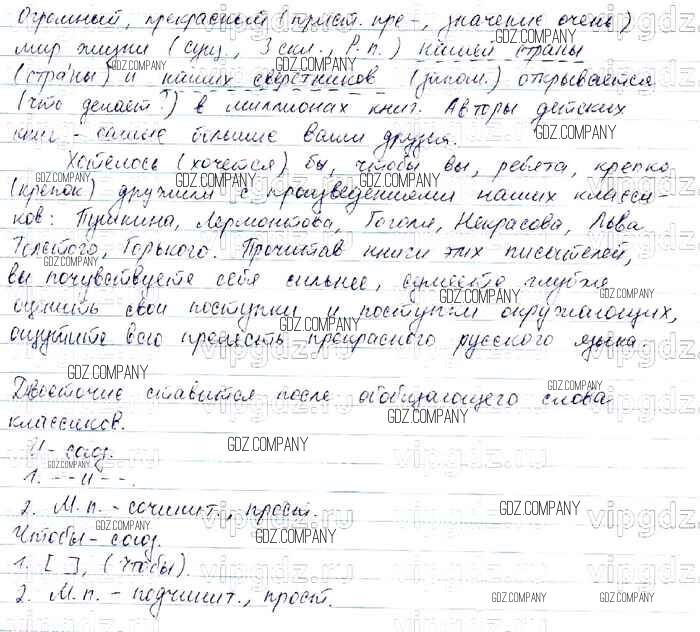 Огромный, прекрасный (прист. пре-, значение очень)
мир жизни (сущ., 3 скл., Р.п.) нашей страны
(страны) и наших сверстников (запом.) открывается
(что делает?) в миллионах книг. Авторы детских
книг - самые большие ваши друзья.
Хотелось (хочется) бы, чтобы вы, ребята, крепко
(крепок) дружили с произведениями наших класси-
ков: Пушкина, Лермонтова, Гоголя, Некрасова, Льва
Толстого, Горького. Прочитав книги этих писателей,
вы почувствуете себя сильнее, сумеете глубже
оценить свои поступки и поступки окружающих,
ощутите всю прелесть прекрасного русского языка.
Двоеточие ставится после обобщающего слова
классиков.
И - союз.
1. --- и ---.
2. М.п. - сочинит., прост.
Чтобы - союз.
1. [ ], (чтобы).
2. М.п. - подчинит., прост.
GDZ.COMPANY
vipgdz.ru